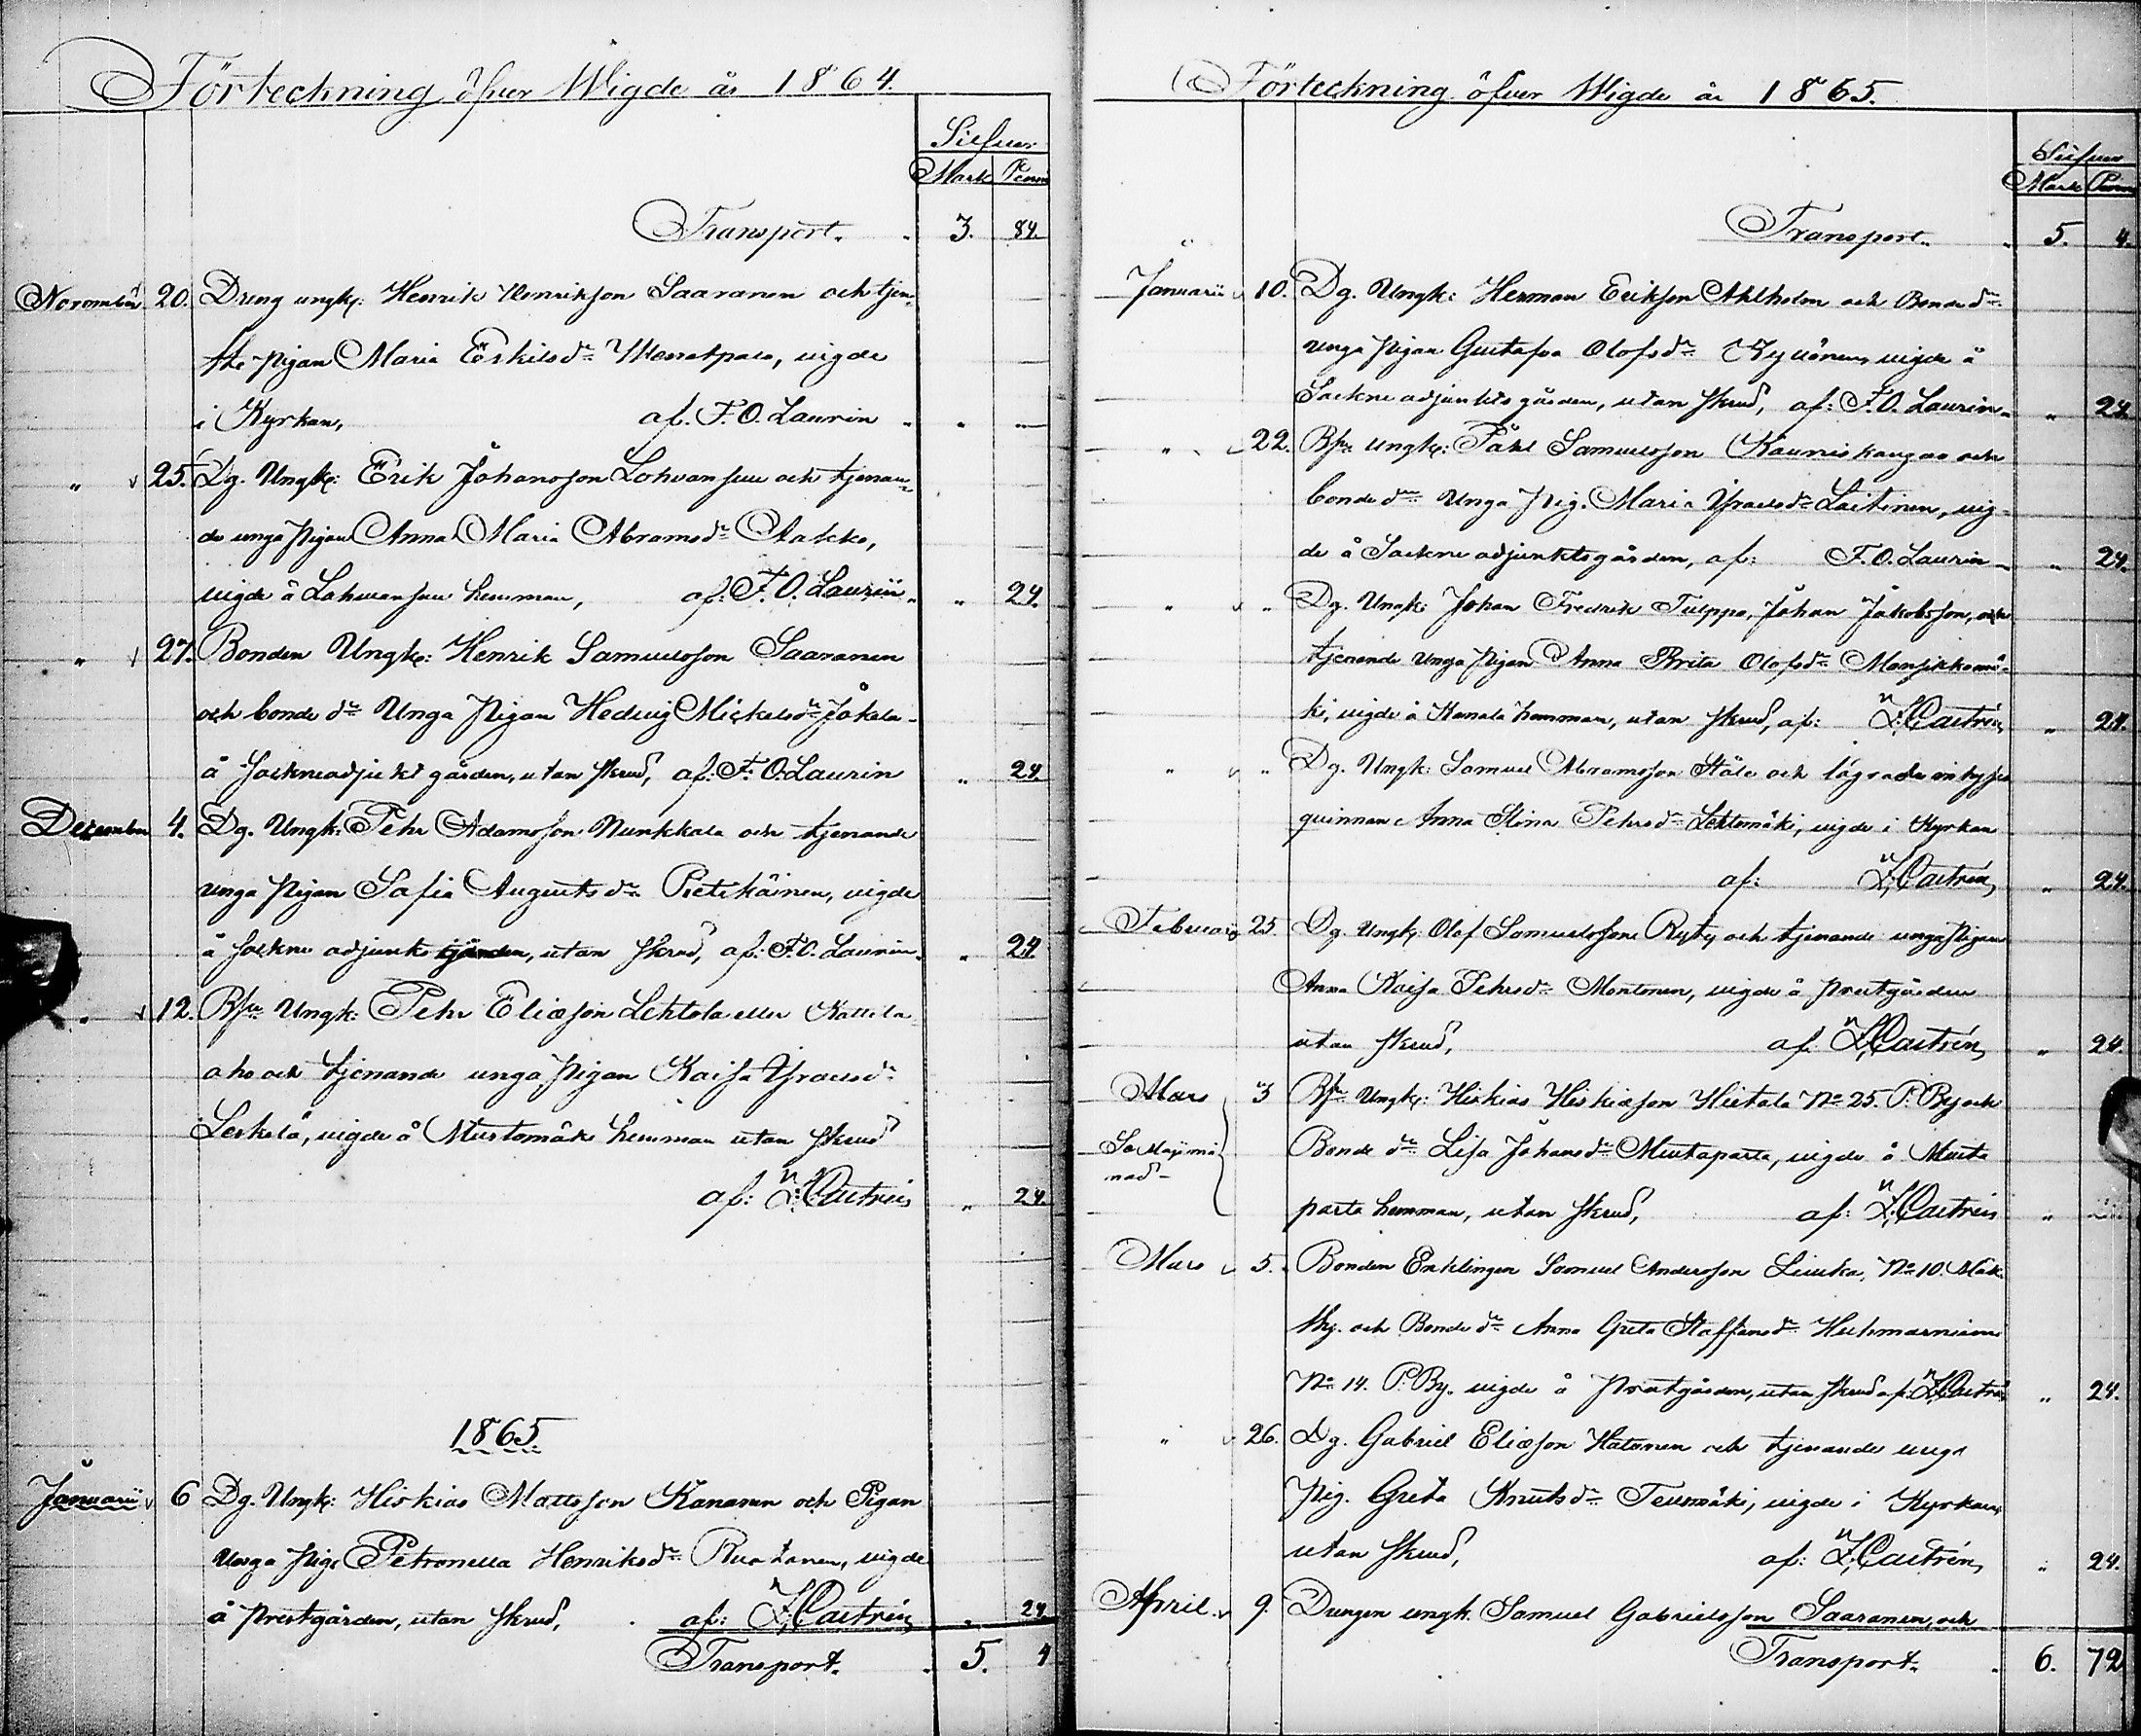 Förteckning öfver Wigde år 1864.
Silfver
Mark Penni
Transport. 3. 84.
November 20. Dreng ungk: Henrik Henriksson Saaranen och tjen-
ste pigan Maria Eskilsdr vigde
i Kyrkan, af. F. O. Laurin
" 25. Dg. Ungk: Erik Johansson Lohvansuu och tjenan-
de unga Pigan Anna Maria Abramsdr Aakko,
vigde å Lohvansuu hemman, af: F. O. Laurin " 24.
" 27. Bonden Ungk: Henrik Samuelsson Saaranen
och bonde dr Unga Pigan Hedvig Mickelsdr Jokela
å Sockneadjunktgården, utan skrud, af: F. O. Laurin " 24
December 4. Dg. Ungk: Pehr Adamsson Nurkkala och tjenande
unga Pigan Sofia Augustsdr Pietikäinen, vigde
å Sockne adjunktsgården, utan skrud, af: F. O. Laurin " 24
" 12. Bsn Ungk: Pehr Eliasson Lehtola eller Kattila
aho och tjenande unga Pigan Kaisa Israelsdr
Leskelä, vigde å Mustomäki hemman utan skrud
af: Z. Castrén " 24.
1865
Januarii 6 Dg. Ungk: Hiskias Mattsson Kananen och Pigan
Unga Pig. Petronella Henriksdr Ruotanen, vigde
å Prestgården, utan skrud, af: Z. Castrén " 24
Transport. 5. 4
Förteckning öfver Wigde år 1865.
Silfver
Mark Penni
Transport. 5. 4.
Januarii 10. Dg. Ungk: Herman Eriksson Ahlholm och Bonde dr
unga Pigan Gustafva Olofsdr Kyrönen, vigde å
Sockne adjunktsgården, utan skrud, af: F. O. Laurin " 24.
" 22. Bsn Ungk: Påhl Samuelsson Kauniskangas och
bonde dr Unga Pig. Maria Israelsdr Laitinen, vig-
de å Sockne adjunktsgården, af: F. O. Laurin " 24.
" " Dg. Ungk: Johan Fredrik Tulppo, Johan Jakobsson, och
tjenande Unga Pigan Anna Brita Olofsdr Mansikkamä-
ki, vigde å Kanala hemman, utan skrud, af: Z. Castrén " 24.
" " Dg. Ungk: Samuel Abramsson Ståle och lägrade inhyses
quinnan Anna Stina Pehrsdr Lehtomäki, vigde i Kyrkan
af: Z. Castrén, " 24.
Februari 25. Dg. Ungk: Olof Samuelsson Ryty och tjenande unga Pigan
Anna Kaisa Pehrsdr Montonen, vigde å Prestgården
utan skrud, af Z. Castrén, " 24.
Mars 3 Bsn Ungk: Hiskias Hiskiasson Hietala No 25. P. By och
Se Maji må-
nad-
Bonde dr Lisa Johansdr Mustaparta, vigde å Musta
parta hemman, utan skrud, af: Z. Castrén "
Mars 5. Bonden Enklingen Samuel Andersson Liuska, No 10.
By. och Bonde dr Anna Greta Staffansdr
No 14. P. By. vigde å Prestgården, utan skrud af: Z. Castrén " 24.
" 26. Dg. Gabriel Eliasson Hatonen och tjenande unga
Pig. Greta Knutsdr Teusmäki, vigde i Kyrkan,
utan skrud, af: Z. Castrén, " 24.
April 9. Drengen ungk. Samuel Gabrielsson Saaranen, och
Transport. 6. 72